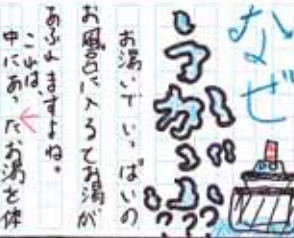 なぜ
うかぶ???
お湯でいっぱいの
お風呂に入るとお湯が
あふれますよね。
これは、
中にあったお湯を体